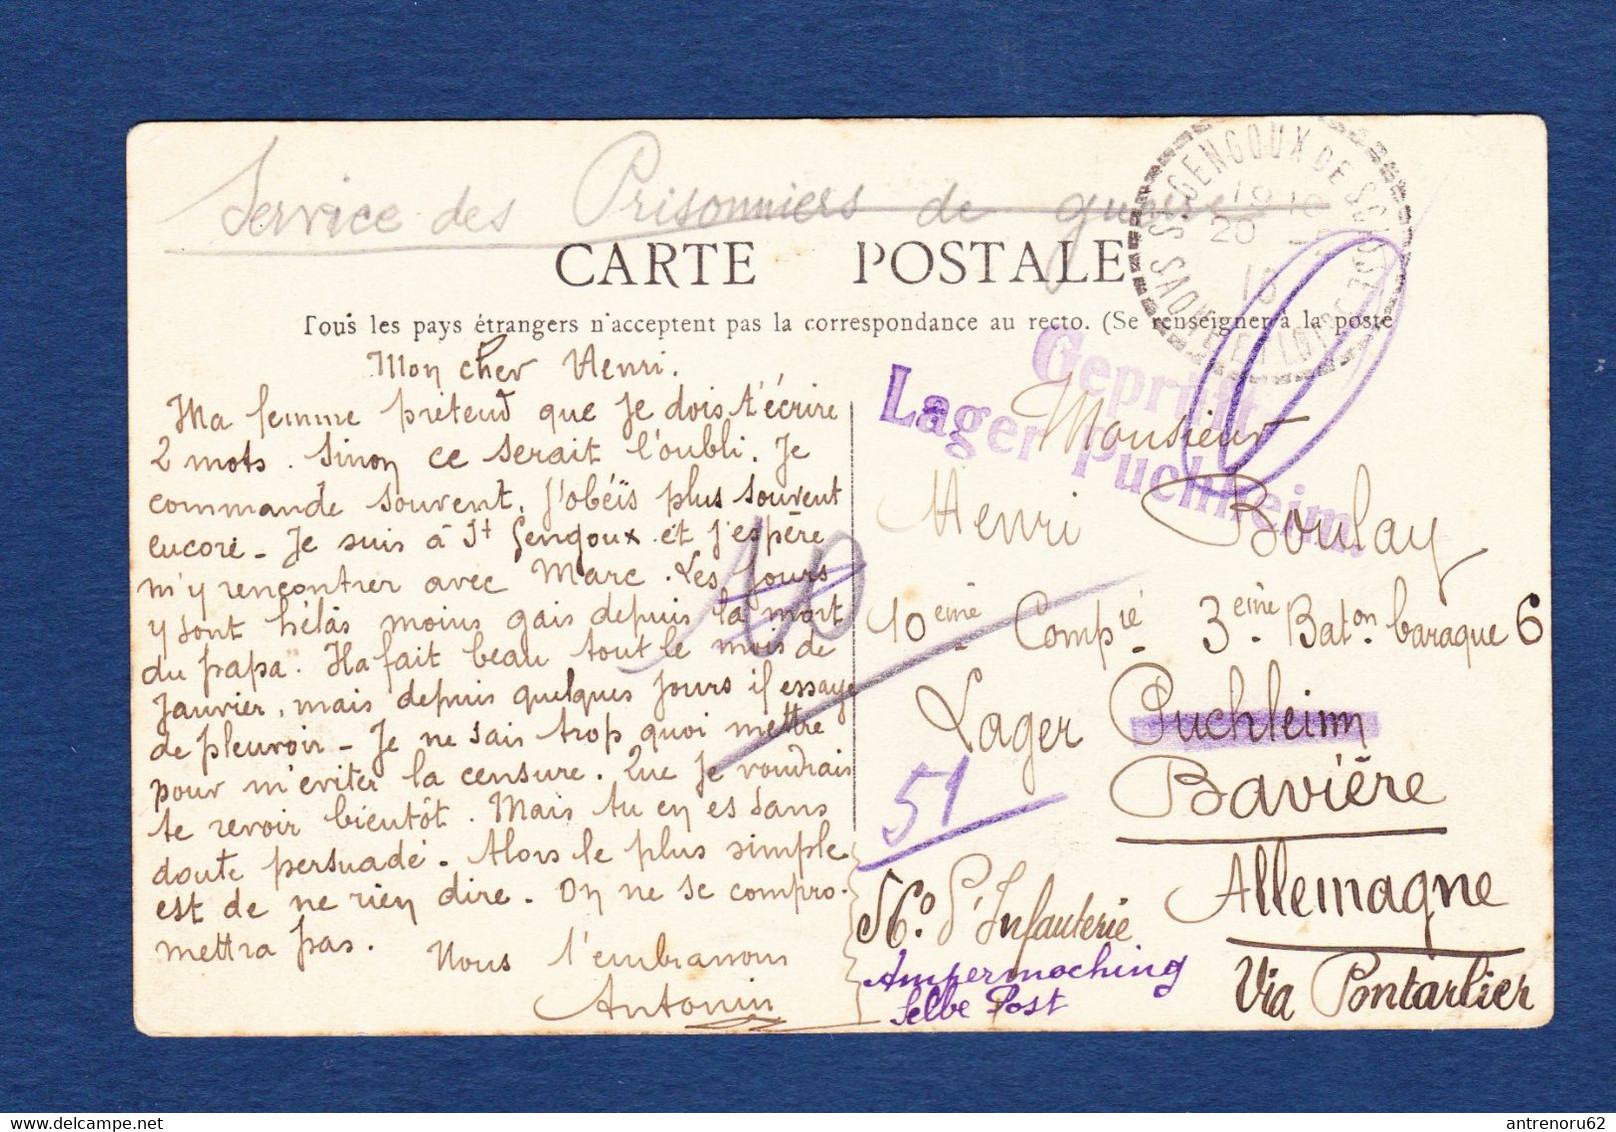 Service des Prisonniers de guerre
CARTE POSTALE
Tous les pays étrangers n'acceptent pas la correspondance au recto. (Se renseigner à la poste
ST GENGOUX DE SCISSÉ
SAONE ET LOIRE
20
Geprüft
Lager Puchheim.
Mon cher Henri.
Ma femme prétend que je dois t'écrire
2 mots. Sinon ce serait l'oubli. Je
commande souvent, j'obéïs plus souvent
encore - Je suis à St Gengoux et j'espère
m'y rencontrer avec Marc. Les jours
y sont hélas moins gais depuis la mort
du papa. Il a fait beau tout le mois de
Janvier, mais depuis quelques jours il essaye
de pleuvoir - Je ne sais trop quoi mettre
pour m'eviter la censure. Que je voudrais
te revoir bientôt. Mais tu en es sans
doute persuadé. Alors le plus simple
est de ne rien dire. On ne se compro-
mettra pas.
Nous t'embrassons
Antonin
10
Monsieur
Henri Boulay
10eme Compie 3eme Baton baraque 6
Lager Puchleim
Bavière
Allemagne
Via Pontarlier
51
56e d'Infanterie
Ampermoching
Selbe Post
antrenoru62